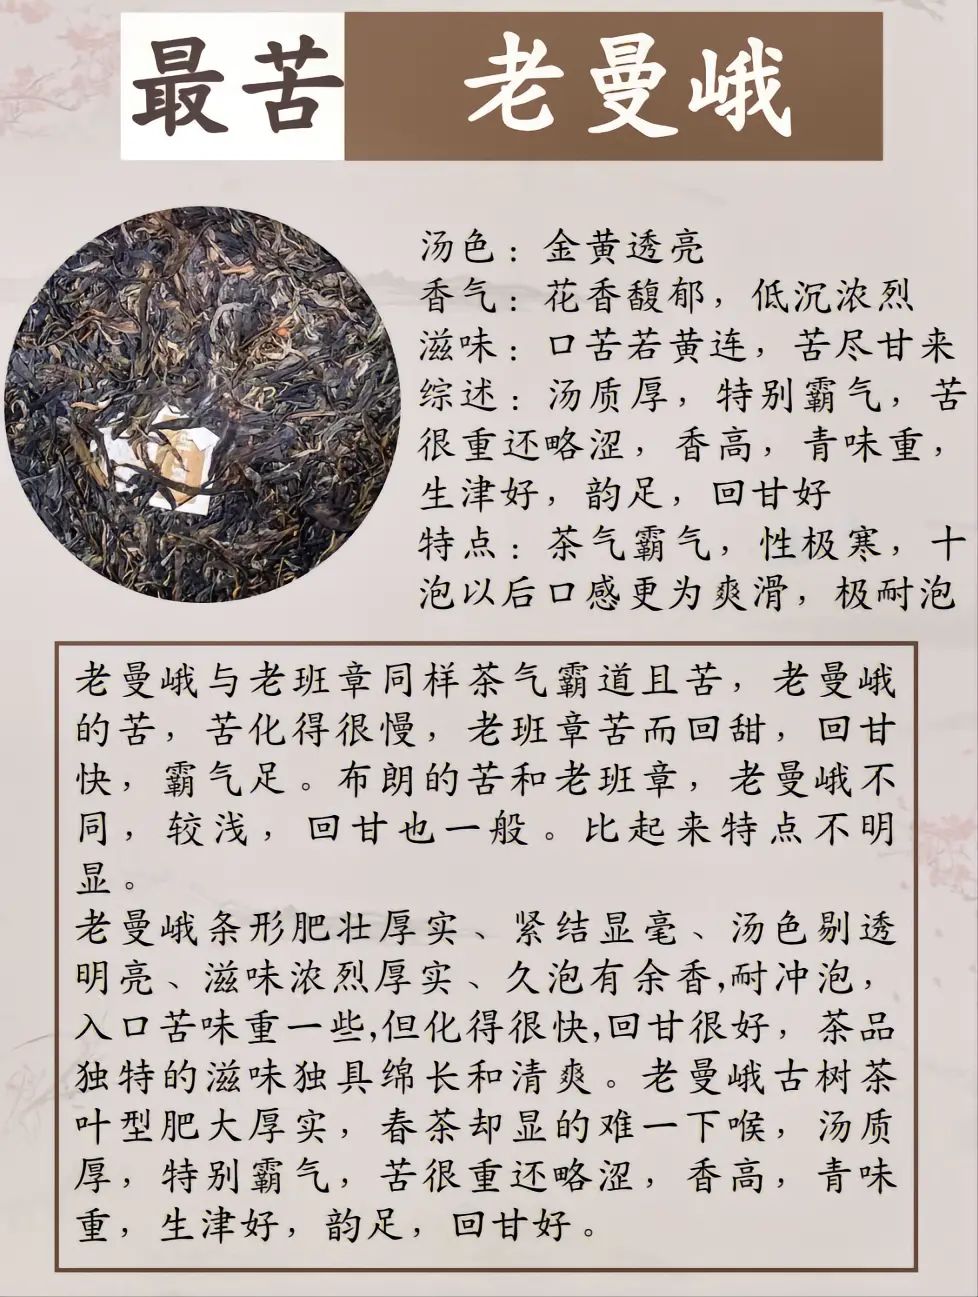 最苦 老曼峨
汤色：金黄透亮
香气：花香馥郁，低沉浓烈
滋味：口苦若黄连，苦尽甘来
综述：汤质厚，特别霸气，苦
很重还略涩，香高，青味重，
生津好，韵足，回甘好
特点：茶气霸气，性极寒，十
泡以后口感更为爽滑，极耐泡
老曼峨与老班章同样茶气霸道且苦，老曼峨
的苦，苦化得很慢，老班章苦而回甜，回甘
快，霸气足。布朗的苦和老班章，老曼峨不
同，较浅，回甘也一般。比起来特点不明
显。
老曼峨条形肥壮厚实、紧结显毫、汤色剔透
明亮、滋味浓烈厚实、久泡有余香,耐冲泡，
入口苦味重一些,但化得很快,回甘很好，茶品
独特的滋味独具绵长和清爽。老曼峨古树茶
叶型肥大厚实，春茶却显的难一下喉，汤质
厚，特别霸气，苦很重还略涩，香高，青味
重，生津好，韵足，回甘好。